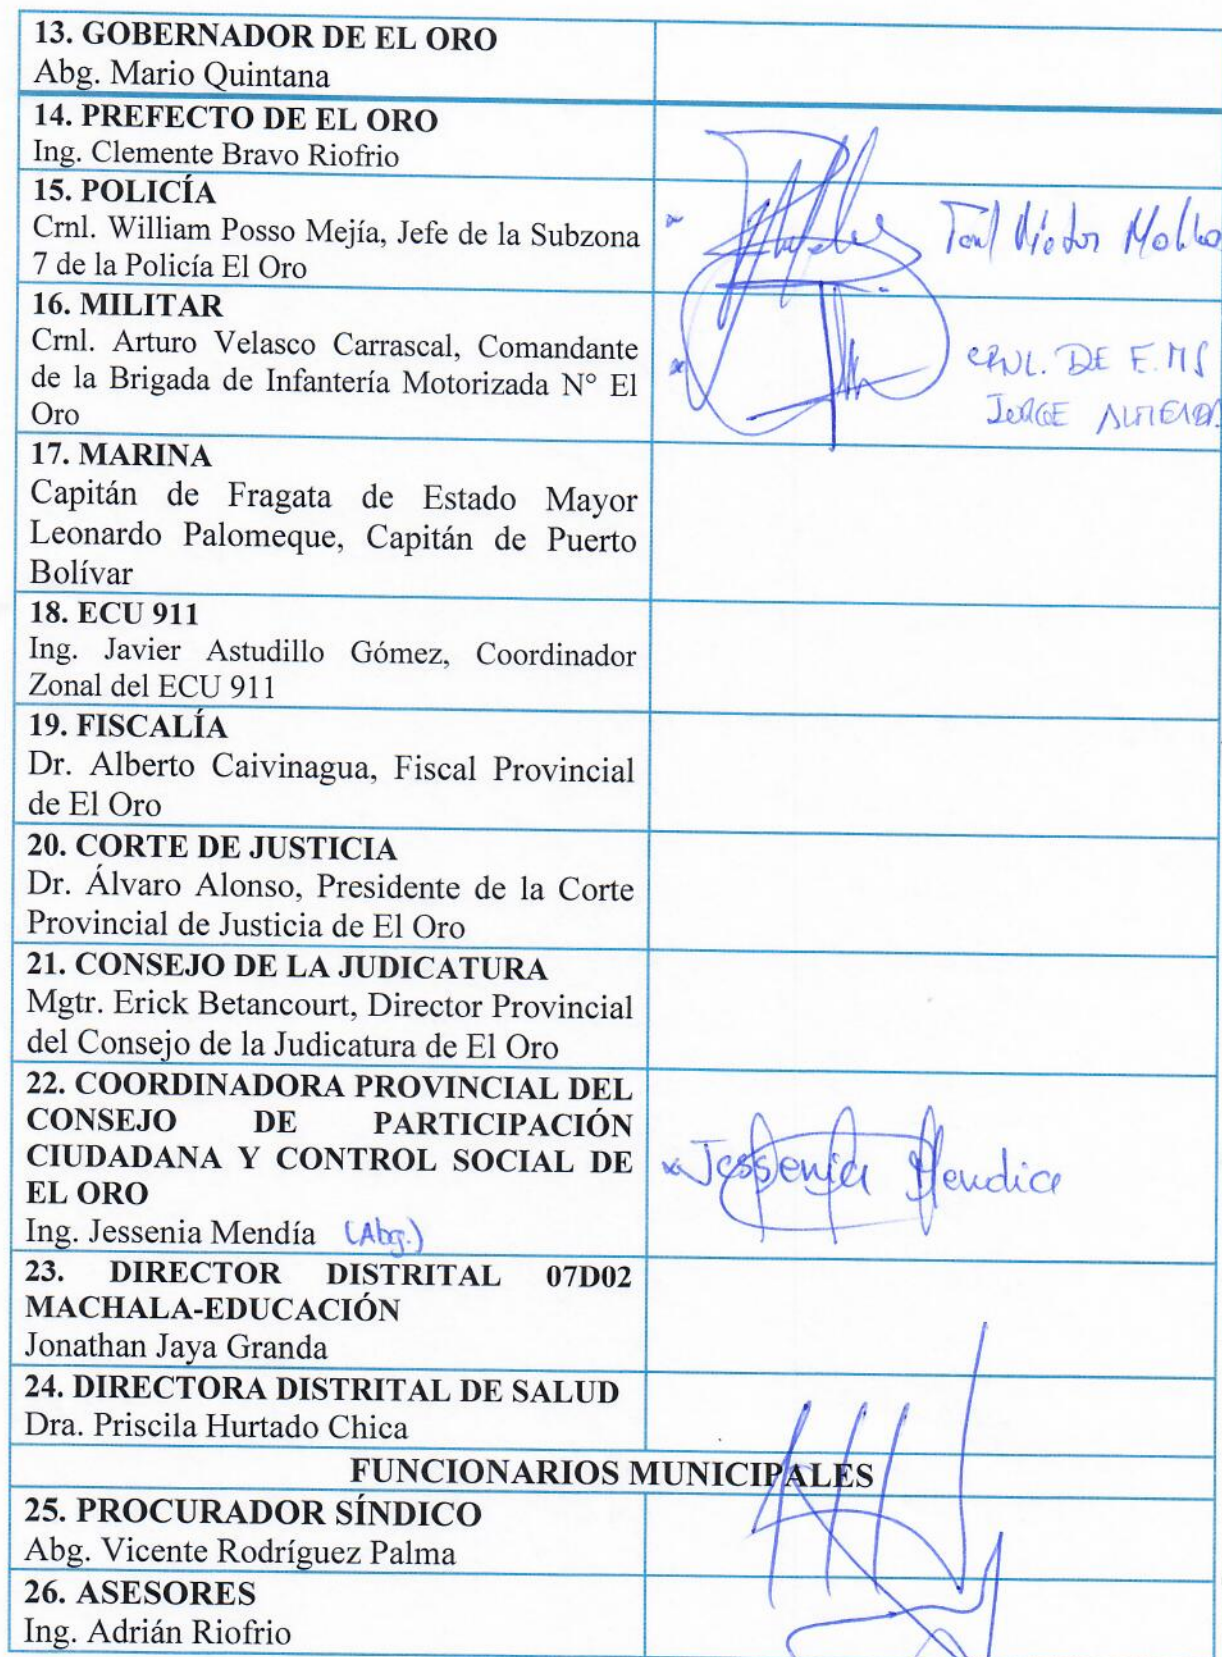 13. GOBERNADOR DE EL ORO
Abg. Mario Quintana
14. PREFECTO DE EL ORO
Ing. Clemente Bravo Riofrio
15. POLICÍA
Crnl. William Posso Mejía, Jefe de la Subzona
7 de la Policía El Oro
Victor
16. MILITAR
Crnl. Arturo Velasco Carrascal, Comandante
de la Brigada de Infantería Motorizada N° El
Oro
CRNL. DE E.MS
JORGE
17. MARINA
Capitán de Fragata de Estado Mayor
Leonardo Palomeque, Capitán de Puerto
Bolívar
18. ECU 911
Ing. Javier Astudillo Gómez, Coordinador
Zonal del ECU 911
19. FISCALÍA
Dr. Alberto Caivinagua, Fiscal Provincial
de El Oro
20. CORTE DE JUSTICIA
Dr. Álvaro Alonso, Presidente de la Corte
Provincial de Justicia de El Oro
21. CONSEJO DE LA JUDICATURA
Mgtr. Erick Betancourt, Director Provincial
del Consejo de la Judicatura de El Oro
22. COORDINADORA PROVINCIAL DEL
CONSEJO DE PARTICIPACIÓN
CIUDADANA Y CONTROL SOCIAL DE
EL ORO
Ing. Jessenia Mendía (Abg.)
Jessenia
23. DIRECTOR DISTRITAL 07D02
MACHALA-EDUCACIÓN
Jonathan Jaya Granda
24. DIRECTORA DISTRITAL DE SALUD
Dra. Priscila Hurtado Chica
FUNCIONARIOS MUNICIPALES
25. PROCURADOR SÍNDICO
Abg. Vicente Rodríguez Palma
26. ASESORES
Ing. Adrián Riofrio